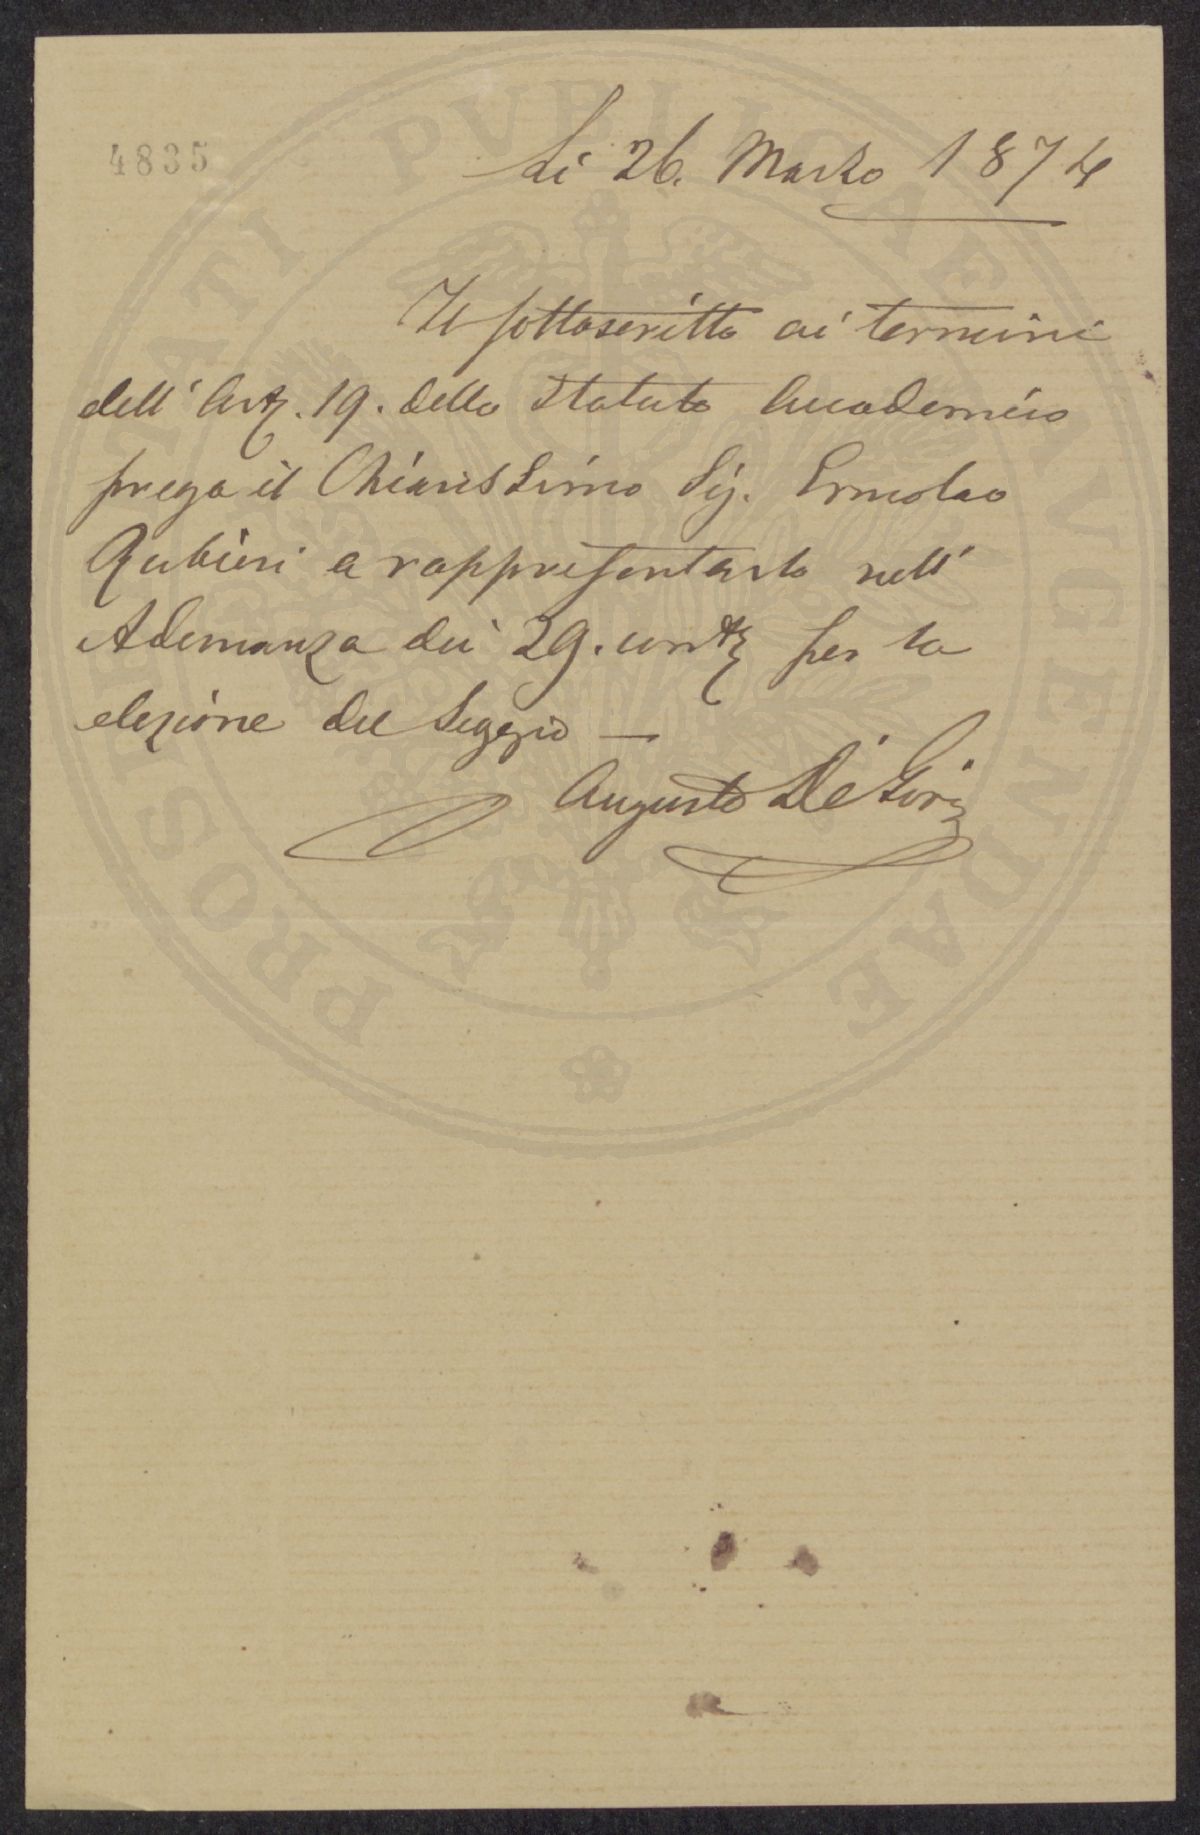 4835
Li 26. Marzo 1874
Il sottoscritto ai termini
dell' Art. 19. dello Statuto Accademico
prega il Chiarissimo Sig. Ermolao
Rubieri a rappresentarlo nell'
Adunanza dei 29. corrte per la
elezione del Seggio —
Augusto De Gori
PROSPERITATI PVBLICAE AVGENDAE